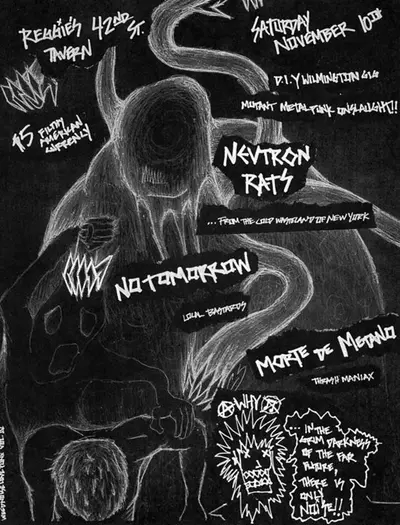 REGGIE'S 42ND ST.
TAVERN
SATURDAY
NOVEMBER 10TH
D.I.Y WILMINGTON GIG
MUTANT METALPUNK ONSLAUGHT!!
$5 FILTHY
AMERICAN
CURRENCY
NEUTRON
RATS
...FROM THE COLD WASTELAND OF NEW YORK
NO TOMORROW
LOCAL BASTARDS
MORTE DE METANO
THRASH MANIAX
WHY
... IN THE
GRIM DARKNESS
OF THE FAR
FUTURE,
THERE IS
ONLY
NOISE!!